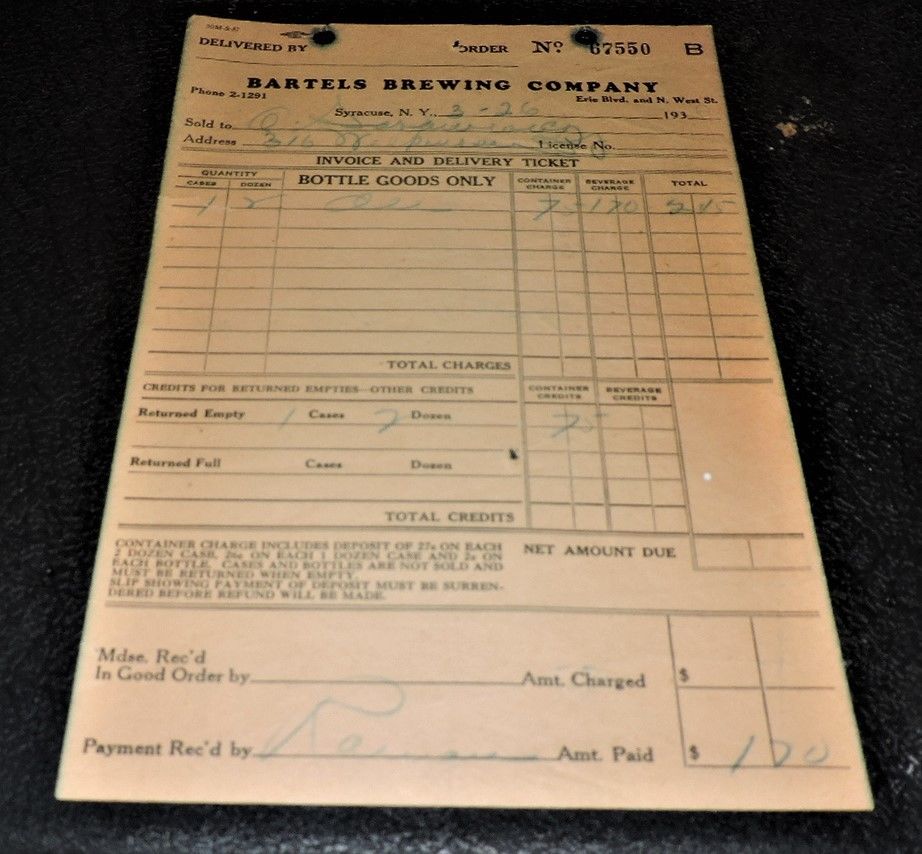 50M-5-37
DELIVERED BY ORDER Nº 67550 B
BARTELS BREWING COMPANY
Phone 2-1291 Erie Blvd. and N. West St.
Syracuse, N. Y., 3-26 193
Sold to
Address 316 W. License No.
INVOICE AND DELIVERY TICKET
QUANTITY BOTTLE GOODS ONLY CONTAINER CHARGE BEVERAGE CHARGE TOTAL
CASES DOZEN
1 2 75 170 245
TOTAL CHARGES
CREDITS FOR RETURNED EMPTIES—OTHER CREDITS CONTAINER CREDITS BEVERAGE CREDITS
Returned Empty 1 Cases 2 Dozen 75
Returned Full Cases Dozen
TOTAL CREDITS
CONTAINER CHARGE INCLUDES DEPOSIT OF 27c ON EACH
2 DOZEN CASE, 26c ON EACH 1 DOZEN CASE AND 2c ON
EACH BOTTLE. CASES AND BOTTLES ARE NOT SOLD AND
MUST BE RETURNED WHEN EMPTY.
SLIP SHOWING PAYMENT OF DEPOSIT MUST BE SURREN-
DERED BEFORE REFUND WILL BE MADE.
NET AMOUNT DUE
Mdse. Rec'd
In Good Order by Amt. Charged $
Payment Rec'd by Amt. Paid $ 170